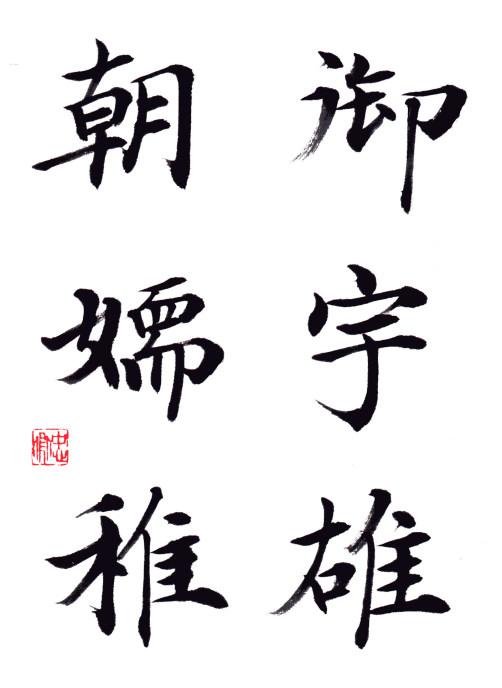 御宇雄
朝嬬稚